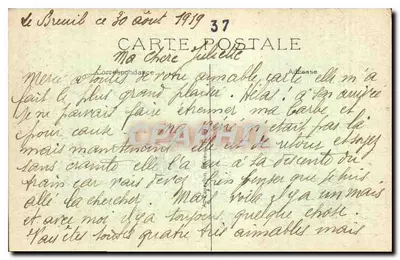 Le Breuil ce 30 août 1919
37
CARTE POSTALE
Ma chère Juliette
Correspondance Adresse
Merci a toutes de votre aimable carte elle m'a
fait le plus grand plaisir. Hélas! à son arrivée
je ne pouvais faire étrenner ma barbe et
pour cause était pas là
mais maintenant elle est de retour et soyez
sans crainte elle l'a eu à la descente du
train car vous devez bien penser que je suis
allé la chercher. Mais voilà il y a un mais
et avec moi il y a toujours quelque chose.
Vous êtes toutes quatre très aimables mais